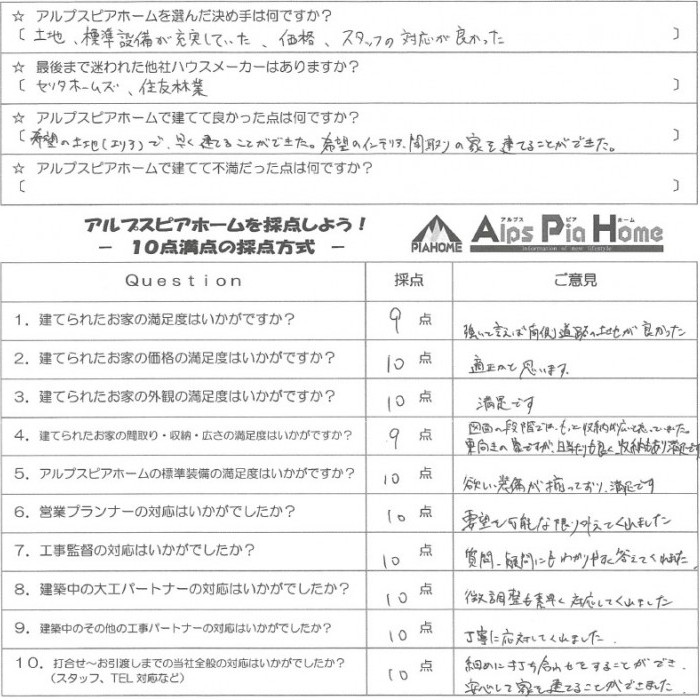 ☆ アルプスピアホームを選んだ決め手は何ですか?
〔 土地、標準設備が充実していた、価格、スタッフの対応が良かった 〕
☆ 最後まで迷われた他社ハウスメーカーはありますか?
〔 ゼリタホームズ、住友林業 〕
☆ アルプスピアホームで建てて良かった点は何ですか?
〔 希望の土地(エリア)で、早く建てることができた。希望のインテリア、間取りの家を建てることができた。 〕
☆ アルプスピアホームで建てて不満だった点は何ですか?
〔 〕
アルプスピアホームを採点しよう!
- 10点満点の採点方式 -
PIAHOME
アルプス ピア ホーム
Alps Pia Home
information of most lifestyle
Question 採点 ご意見
1. 建てられたお家の満足度はいかがですか? 9 点 強いて言えば南側道路の土地が良かった
2. 建てられたお家の価格の満足度はいかがですか? 10 点 適正かと思います。
3. 建てられたお家の外観の満足度はいかがですか? 10 点 満足です
4. 建てられたお家の間取り・収納・広さの満足度はいかがですか? 9 点 図面の段階では、もっと収納が広いと思っていました。
東向きの家ですが、日当たりも良く、収納もあり満足です
5. アルプスピアホームの標準装備の満足度はいかがですか? 10 点 欲しい装備が揃っており、満足です
6. 営業プランナーの対応はいかがでしたか? 10 点 要望を可能な限り叶えてくれました
7. 工事監督の対応はいかがでしたか? 10 点 質問、疑問にもわかりやすく答えてくれました
8. 建築中の大工パートナーの対応はいかがでしたか? 10 点 微調整も素早く対応してくれました
9. 建築中のその他の工事パートナーの対応はいかがでしたか? 10 点 丁寧に応対してくれました。
10. 打合せ~お引渡しまでの当社全般の対応はいかがでしたか?
(スタッフ、TEL対応など) 10 点 細めに打ち合わせをすることができ、
安心して家を建てることができました